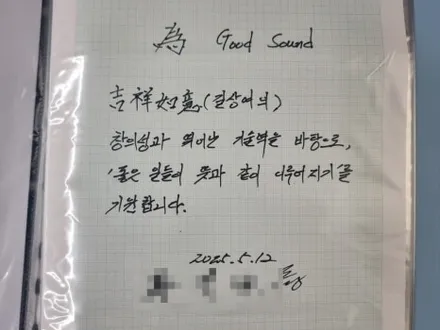 為 Good Sound
吉祥如意(길상여의)
창의성과 뛰어난 기술력을 바탕으로,
좋은 일들이 뜻과 같이 이루어지기를
기원합니다.
2025.5.12